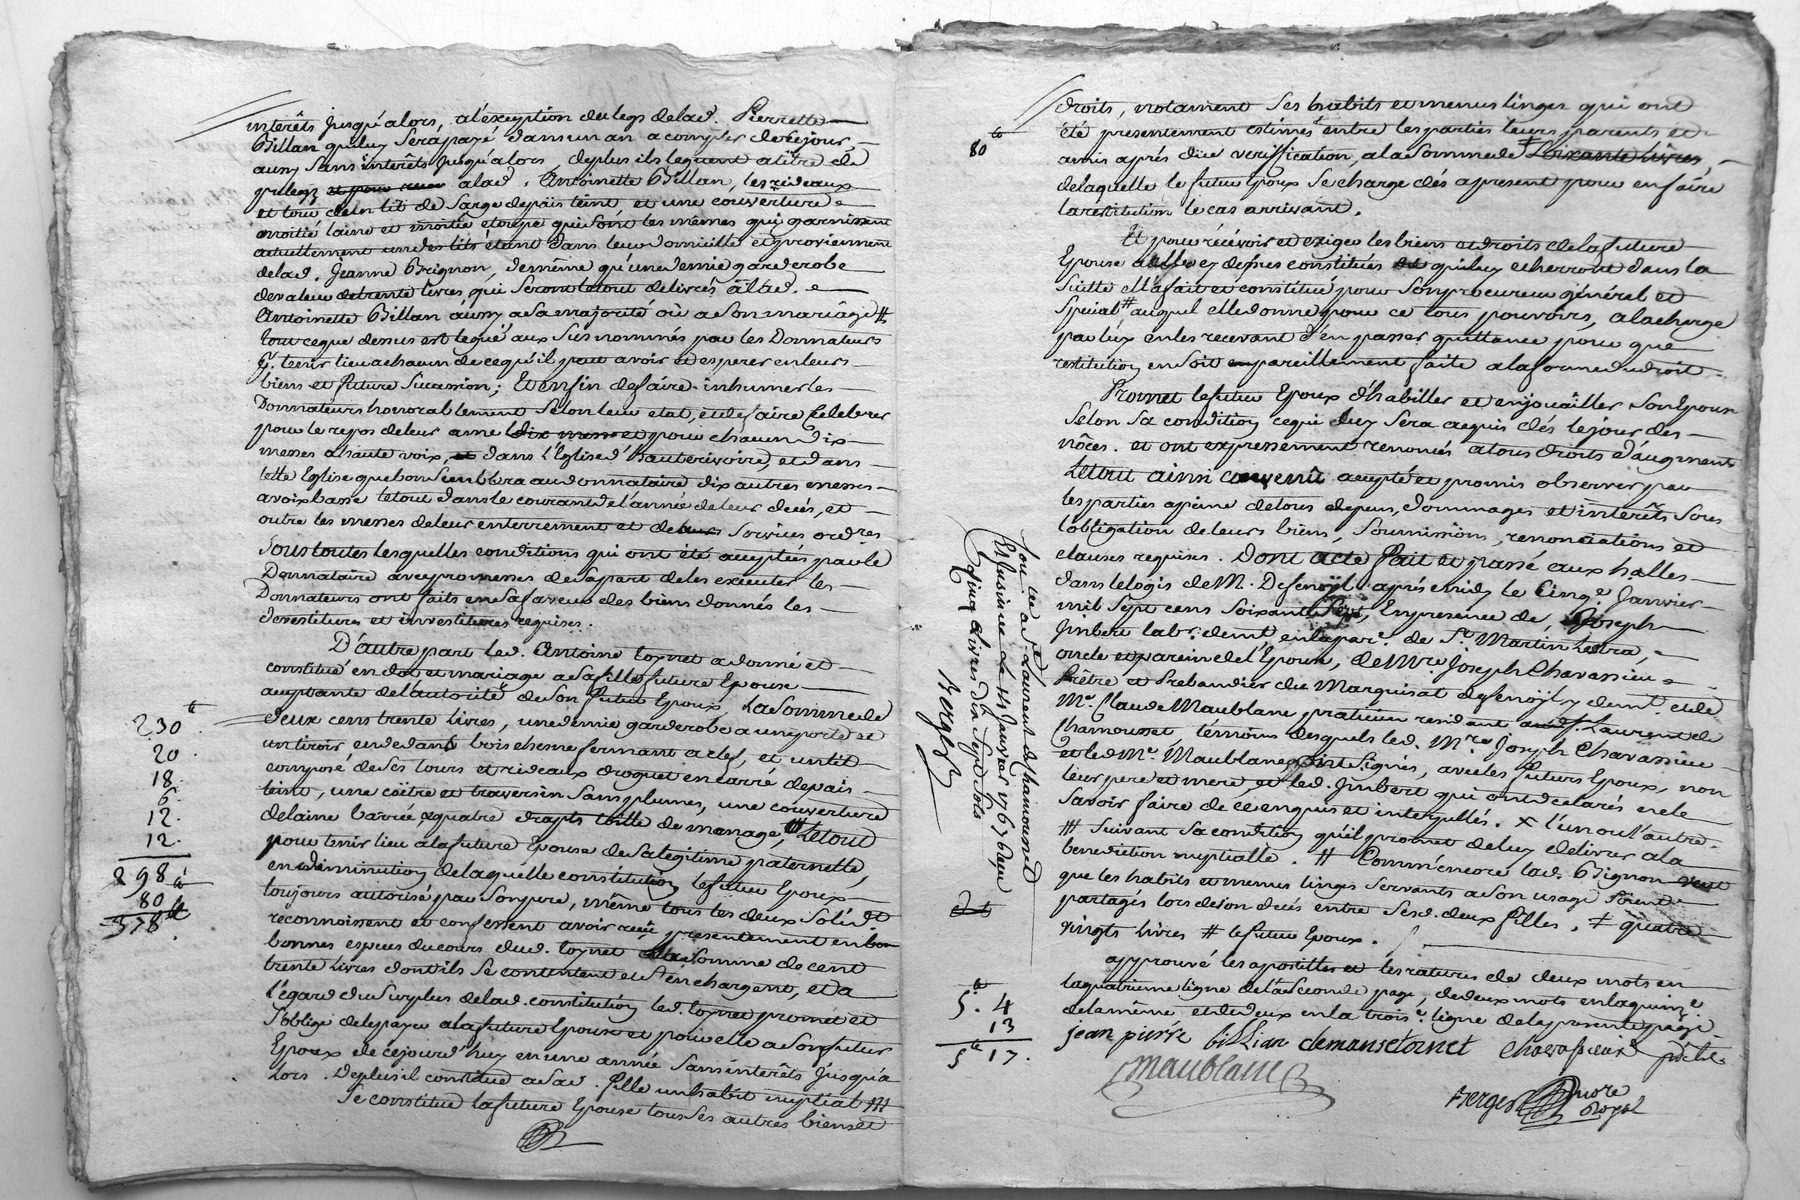 intérêts jusqu'alors, a l'exception du legs de lad. Pierrette
Billan qui luy sera payé dans un an a compter de ce jour,
aussy sans intérêts jusqu'alors, de plus ils leguent a titre de
a lad. Antoinette Billan, les rideaux
et tour de un lit de sarge depuis teint et une couverture
moitié laine et moitié etoupe qui sont les mêmes qui garnissent
actuellement un des lits étant dans leur domicille et proviennent
de lad. Jeanne Brignon, de même qu'une demie garderobe
de valeur de trente livres, qui seront le tout delivrés à lad.
Antoinette Billan aussy a sa majorité où a son mariage #
tout ce que dessus est legué aux susnommés par les Donnateurs
p.r tenir lieu a chacun de ce qu'il peut avoir et esperer en leurs
biens et future succession; Et enfin de faire inhumer les
Donnateurs honorablement selon leur etat, et de faire celebrer
pour le repos de leur ame dix messes et pour chacun dix
messes a haute voix, dans l'Eglise d'hauterivoire, et dans
telle Eglise que bon semblera au donnataire dix autres messes
a voix basse le tout dans le courant de l'année de leur decés, et
outre les messes de leur enterrement et de leurs services ordres
sous toutes lesquelles conditions qui ont eté acceptées par le
Donnataire avec promesses de sa part de les executer les
Donnateurs ont faits en sa faveur des biens donnés les
devestitures et investitures requises.
D'autre part led. Antoine toynet a donné et
constitué en dot et mariage a sa fille future Epouse
acceptante de l'autorité de son futur Epoux, La somme de
deux cens trente livres, une demie garderobe a une porte et
un tiroir en dedans bois chesne fermant a clef, et un lit
composé de ses tours et rideaux droguet en carré depuis
teint, une coitre et traversin sans plumes, une couverture
de laine barrée, quatre draps toille de menage, # Le tout
pour tenir lieu a la future Epouse de sa legitime paternelle,
en diminution de laquelle constitution le futur Epoux
toujours autorisé par son pere, même tous les deux solid.t
reconnoissent et confessent avoir reçu presentement en bon
bonnes especes du cours dud. toynet la somme de cent
trente livres dont ils se contentent et s'en chargent, et a
l'égard du surplus de lad. constitution led. toynet promet et
s'oblige de le payer a la future Epouse et pour elle a son futur
Epoux de ce jourd'huy en une année sans intérêts jusqu'a
lors. De plus il constitue a sad. fille un habit nuptial ###
Se constitue la future Epouse tous ses autres biens et
230 tt
20
18.
6.
12.
12.
298 tt
80 tt
378 tt
droits, notament ses habits et menus linges qui ont
été presentement estimés entre les parties leurs parents et
amis aprés due veriffication, a la somme de # soixante livres,
de laquelle le futur Epoux se charge dés a present pour en faire
la restitution le cas arrivant.
80 tt
Et pour récévoir et exiger les biens et droits de la future
Epouse a elle cy dessus constitués et qui luy echerront dans la
suitte elle a fait et constitué pour son procureur général et
Spécial # auquel elle donne pour ce tous pouvoirs, a la charge
par lui en les recevant d'en passer quittance pour que
restitution en soit pareillement faite a la forme du droit.
Promet le futur Epoux d'habiller et enjouailler son Epouse
selon sa condition ce qui luy sera acquis dés le jour des
nôces. et ont expressement renoncés a tous droits d'augment
Le tout ainsi convenû accepté et promis observer par
les parties a peine de tous depens, dommages et intérêts sous
l'obligation de leurs biens, soumissions, renonciations et
clauses requises. Dont acte fait et passé aux halles
dans le logis de M. Defenoÿl aprés midy le cinq.e Janvier
mil sept cens soixante sept, En presence de, Joseph
Jmbert lab.r demt. en la par.e de S.t Martin Lestra,
oncle et parein de l'Epoux, de M.re Joseph Chavassieu
Prêtre et Prebandier du Marquisat defenoÿl y demt. et de
M.e Claude Maublanc praticien resident aud. S.t Laurent de
Chamousset, témoins desquels led. M.re Joseph Chavassieu
et led. M.e Maublanc ont signés, avec les futurs Epoux, non
leur pere et mere et led. Jmbert qui ont declarés ne le
savoir faire de ce enquis et interpellés. x l'un ou l'autre
### suivant sa condition qu'il promet de luy delivrer a la
benediction nuptialle. # Comm'encore lad. Brignon veut
que les habits et menus linges servants a son usage soient
partagés lors de son decés entre ses d. deux filles. ≠ quatre
vingts livres # le futur Epoux.
approuvé les apostilles et les ratures de deux mots en
la quatrieme ligne de la seconde page, de deux mots en la quinz.e
de la même, et de deux en la trois.e ligne de la presente page
jean pierre billian clemansetoinet Chavassieux prêtre
Maublanc
Berger Nore Royal
Con.lé a S.t Laurent de Chamousset
le Janvier 1767 Reçu
Cinq Livres dix sept sols
Berger
5 tt. 4
13
5 tt 17.